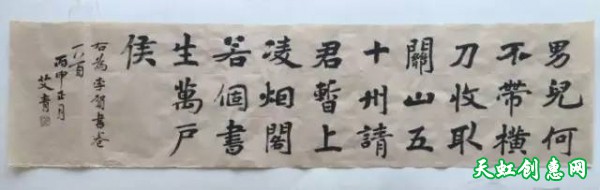 男兒何
不帶橫
刀收取
關山五
十州請
君暫上
凌烟閣
若個書
生萬戶
侯
右為李賀書
丙申正月
艾青
天虹创惠网